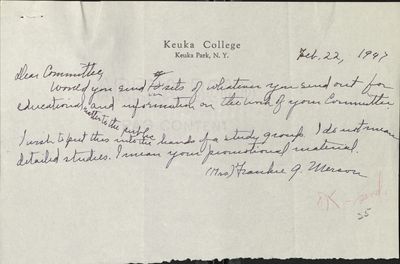 Keuka College
Keuka Park, N. Y.
Feb. 22, 1947
Dear Committee,
Would you send sets of whatever you send out for
educational and information on the work of your Committee
matter to the public
I wish to put this into the hands of a study group. I do not mean
detailed studies. I mean your promotional material.
(Mrs) Frankie G. Merson
OK - send.
25